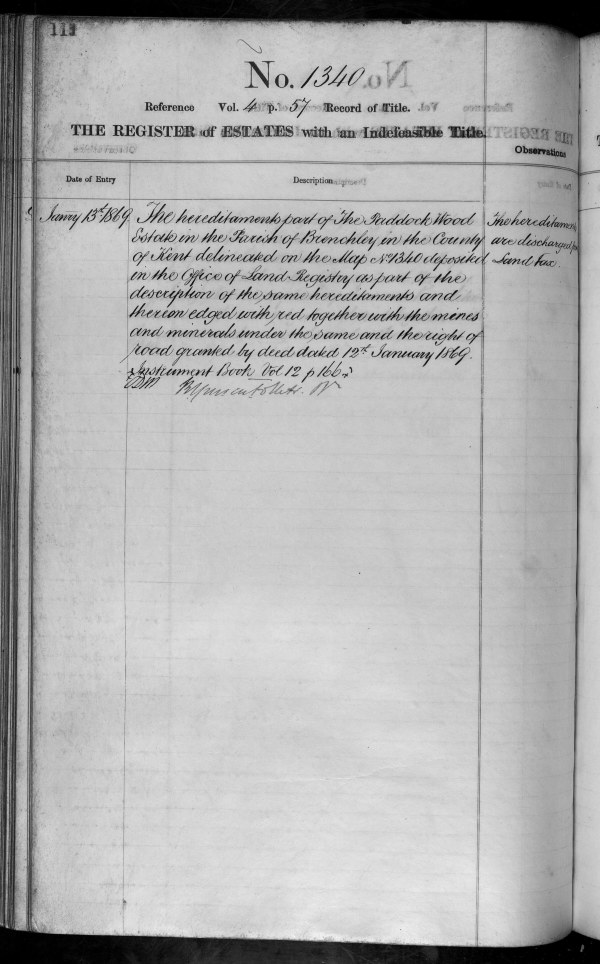 No. 1340
Reference Vol. 4 p. 57 Record of Title.
THE REGISTER of ESTATES with an Indefeasible Title.
Observations
Date of Entry
Description
Janry 13th 1869
The hereditaments part of The Paddock Wood
Estate in the Parish of Brenchley in the County
of Kent delineated on the Map No 1340 deposited
in the Office of Land Registry as part of the
description of the same hereditaments and
thereon edged with red together with the mines
and minerals under the same and the right of
road granted by deed dated 12th January 1869.
Instrument Book Vol 12 p 166
The hereditaments
are discharged from
Land tax.